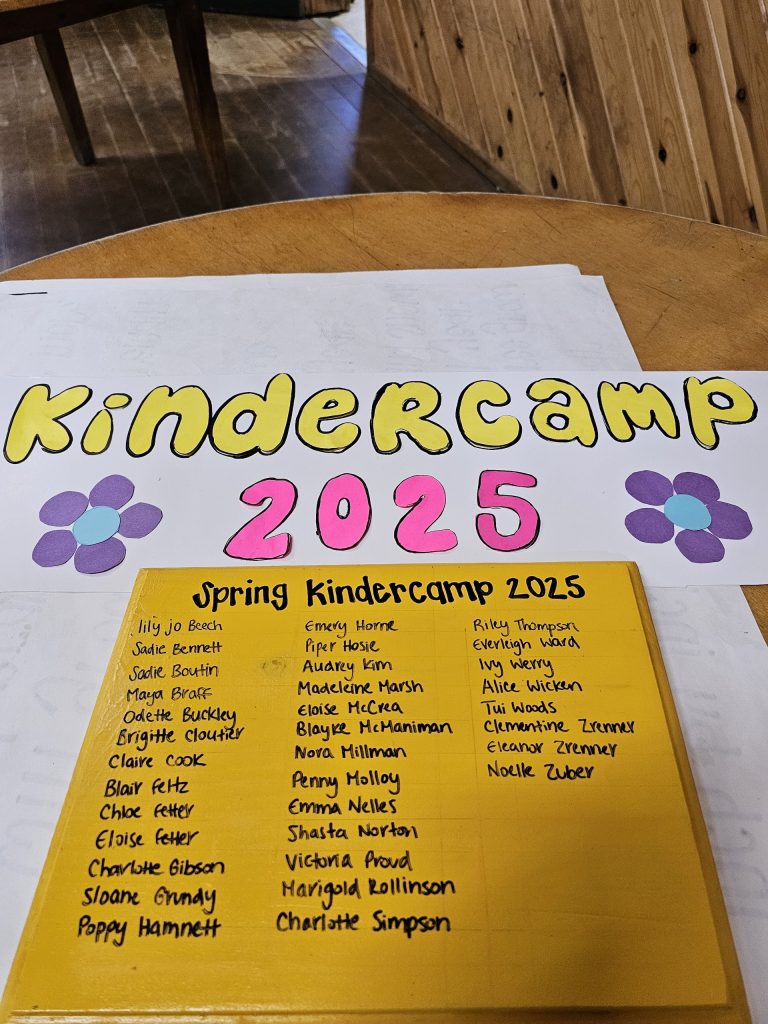 Kindercamp
2025
Spring Kindercamp 2025
lily jo Beech
Sadie Bennett
Sadie Boutin
Maya Braff
Odette Buckley
Brigitte Cloutier
Claire Cook
Blair Feltz
Chloe Fetter
Eloise Fetter
Charlotte Gibson
Sloane Grundy
Poppy Hamnett
Emery Horne
Piper Hosie
Audrey Kim
Madeleine Marsh
Eloise McCrea
Blayke McManiman
Nora Millman
Penny Molloy
Emma Nelles
Shasta Norton
Victoria Proud
Marigold Rollinson
Charlotte Simpson
Riley Thompson
Everleigh Ward
Ivy Werry
Alice Wicken
Tui Woods
Clementine Zrenner
Eleanor Zrenner
Noelle Zuber